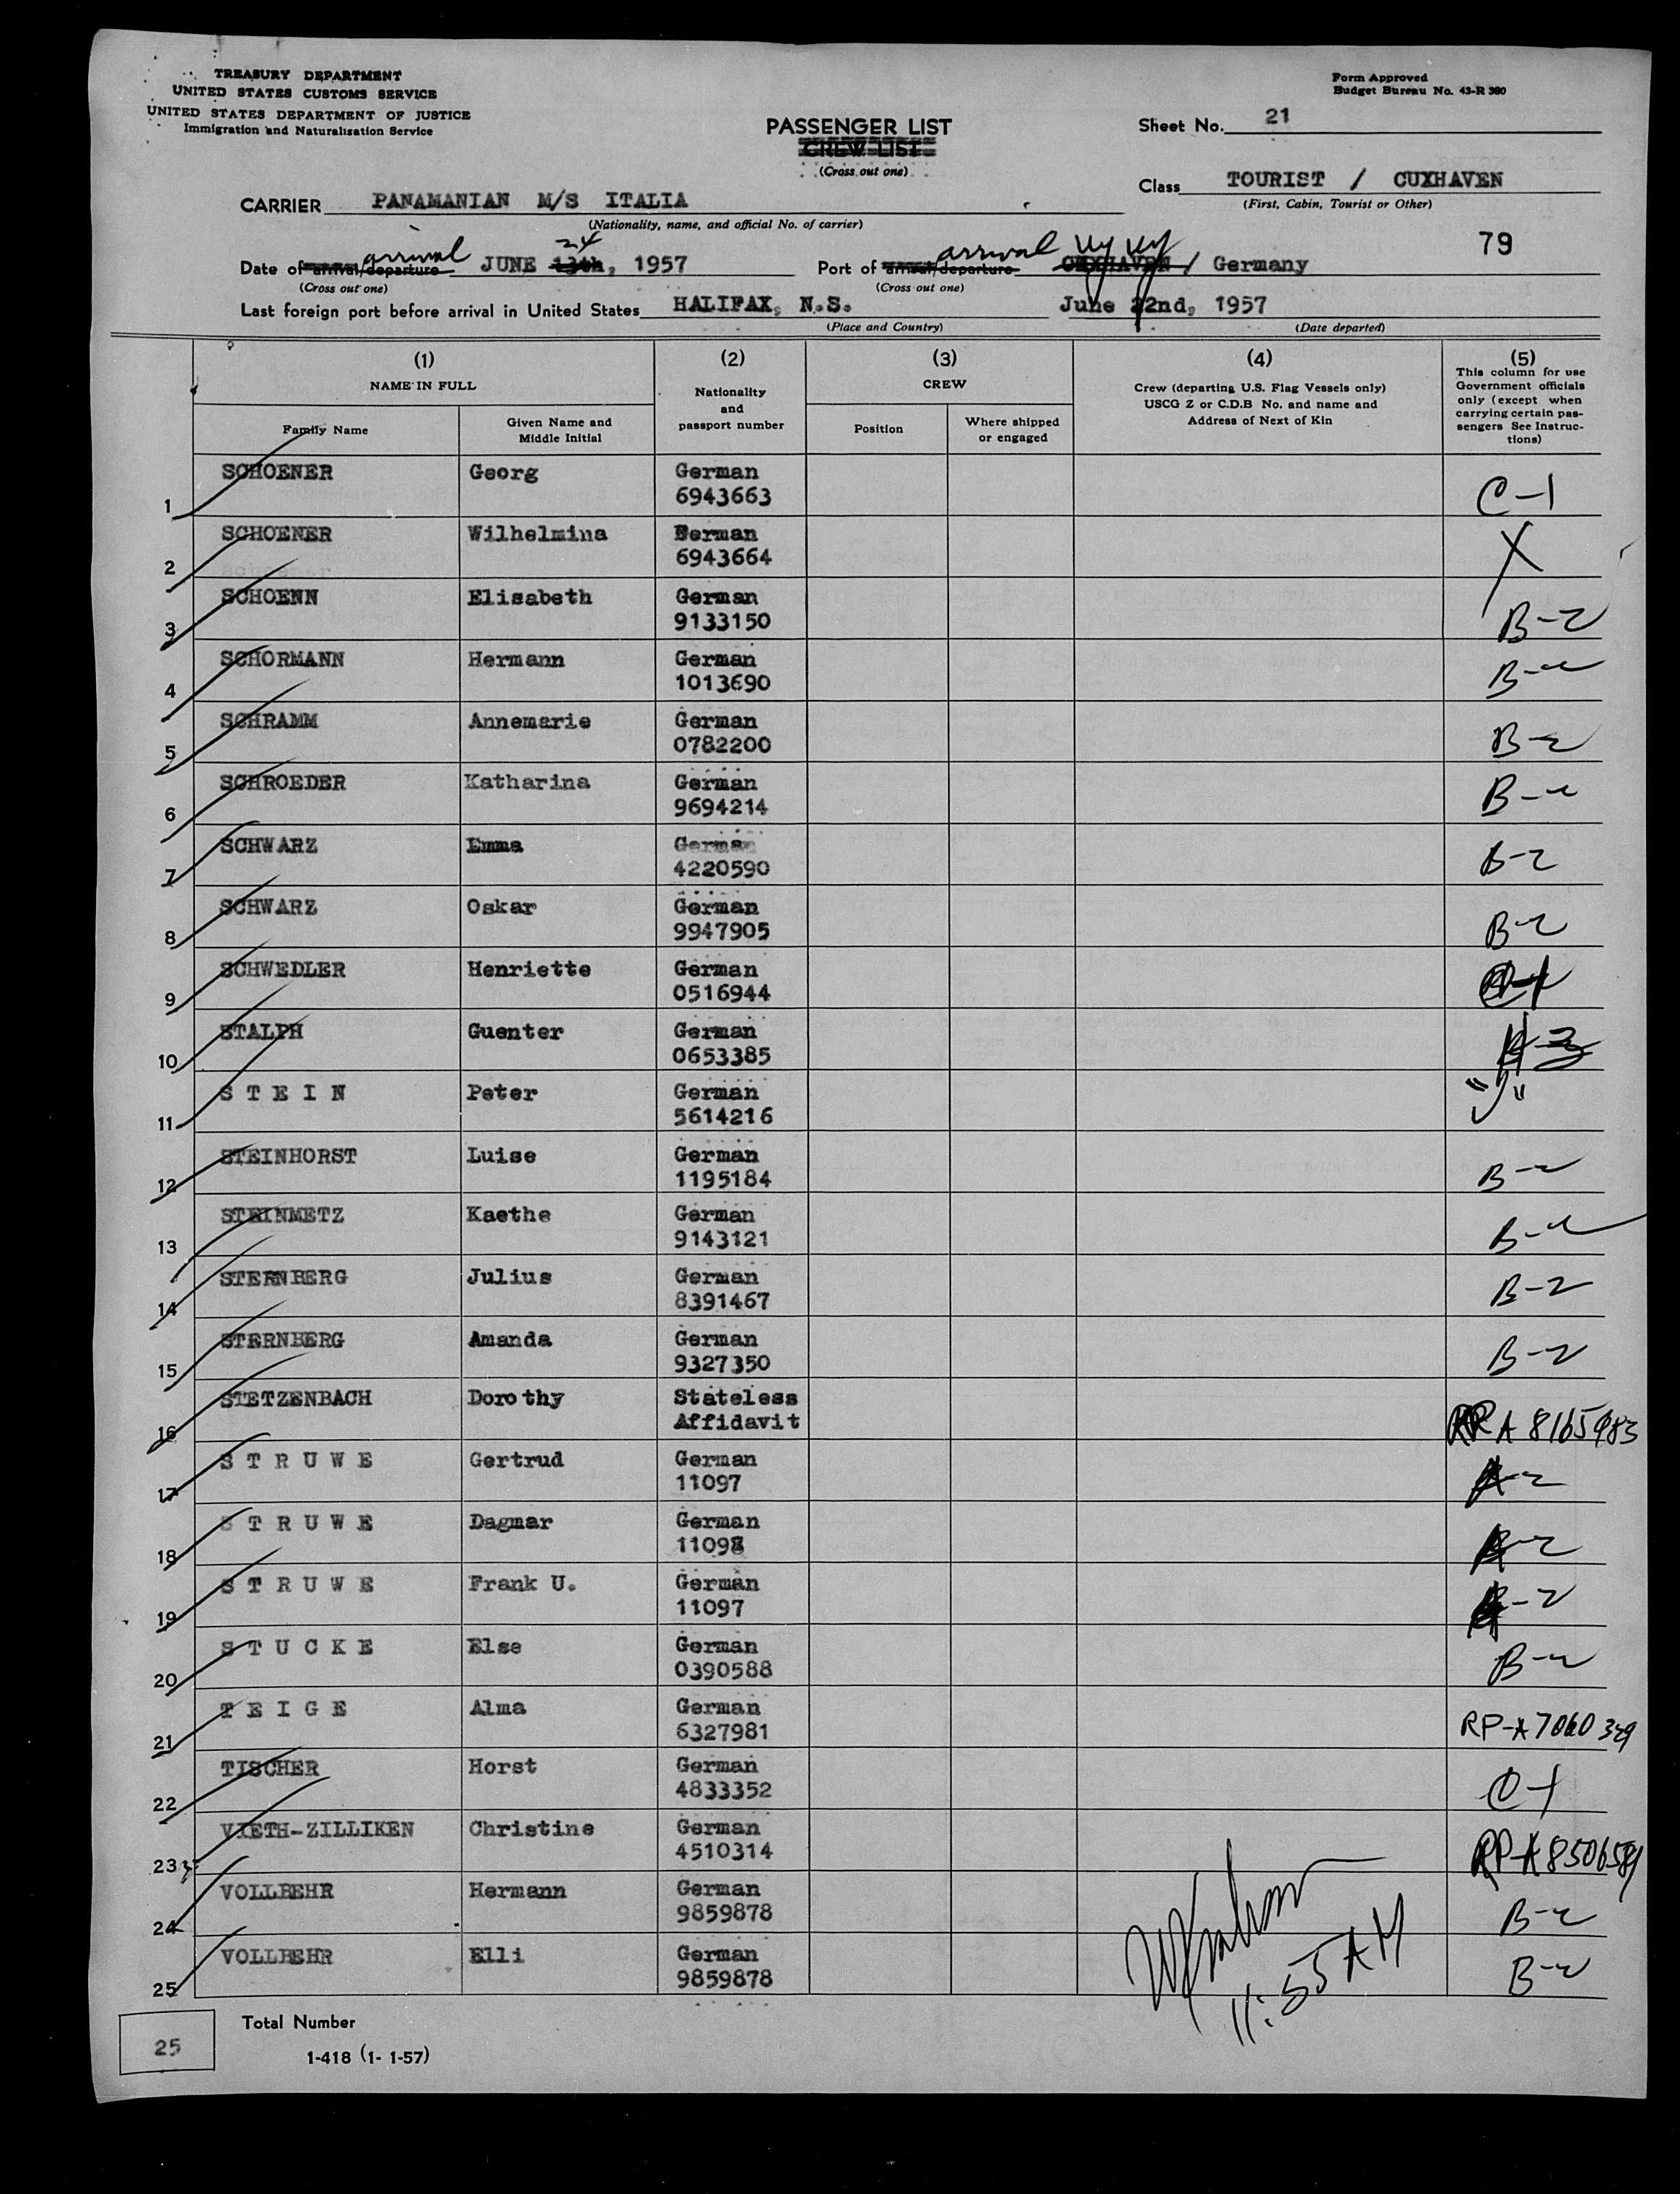 TREASURY DEPARTMENT
UNITED STATES CUSTOMS SERVICE
UNITED STATES DEPARTMENT OF JUSTICE
Immigration and Naturalization Service
Form Approved
Budget Bureau No. 43-R 380
PASSENGER LIST
CREW LIST
(Cross out one)
Sheet No. 21
Class TOURIST / CUXHAVEN
(First, Cabin, Tourist or Other)
CARRIER PANAMANIAN M/S ITALIA
(Nationality, name, and official No. of carrier)
79
arrival 24 arrival NY NY
Date of arrival/departure JUNE 13th, 1957 Port of arrival/departure CUXHAVEN / Germany
(Cross out one) (Cross out one)
Last foreign port before arrival in United States HALIFAX, N.S. June 22nd, 1957
(Place and Country) (Date departed)
(1) (2) (3) (4) (5)
NAME IN FULL
Nationality and passport number
CREW
Crew (departing U.S. Flag Vessels only)
USCG Z or C.D.B No. and name and
Address of Next of Kin
This column for use
Government officials
only (except when
carrying certain pas-
sengers See Instruc-
tions)
Family Name
Given Name and
Middle Initial
Position
Where shipped
or engaged
1 SCHOENER Georg German 6943663 C-1
2 SCHOENER Wilhelmina German 6943664 X
3 SCHOENN Elisabeth German 9133150 B-2
4 SCHORMANN Hermann German 1013690 B-2
5 SCHRAMM Annemarie German 0782200 B-2
6 SCHROEDER Katharina German 9694214 B-2
7 SCHWARZ Emma German 4220590 B-2
8 SCHWARZ Oskar German 9947905 B-2
9 SCHWEDLER Henriette German 0516944
10 STALPH Guenter German 0653385
11 STEIN Peter German 5614216 "J"
12 STEINHORST Luise German 1195184 B-2
13 STEINMETZ Kaethe German 9143121 B-2
14 STERNBERG Julius German 8391467 B-2
15 STERNBERG Amanda German 9327350 B-2
16 STETZENBACH Dorothy Stateless Affidavit A 8165983
17 STRUWE Gertrud German 11097
18 STRUWE Dagmar German 11098
19 STRUWE Frank U. German 11097
20 STUCKE Else German 0390588 B-2
21 TEIGE Alma German 6327981 RP-A 7060 329
22 TISCHER Horst German 4833352 C-1
23 VIETH-ZILLIKEN Christine German 4510314 RP-A 8506589
24 VOLLBEHR Hermann German 9859878 B-2
25 VOLLBEHR Elli German 9859878 B-2
11:55 AM
25
Total Number
1-418 (1- 1-57)